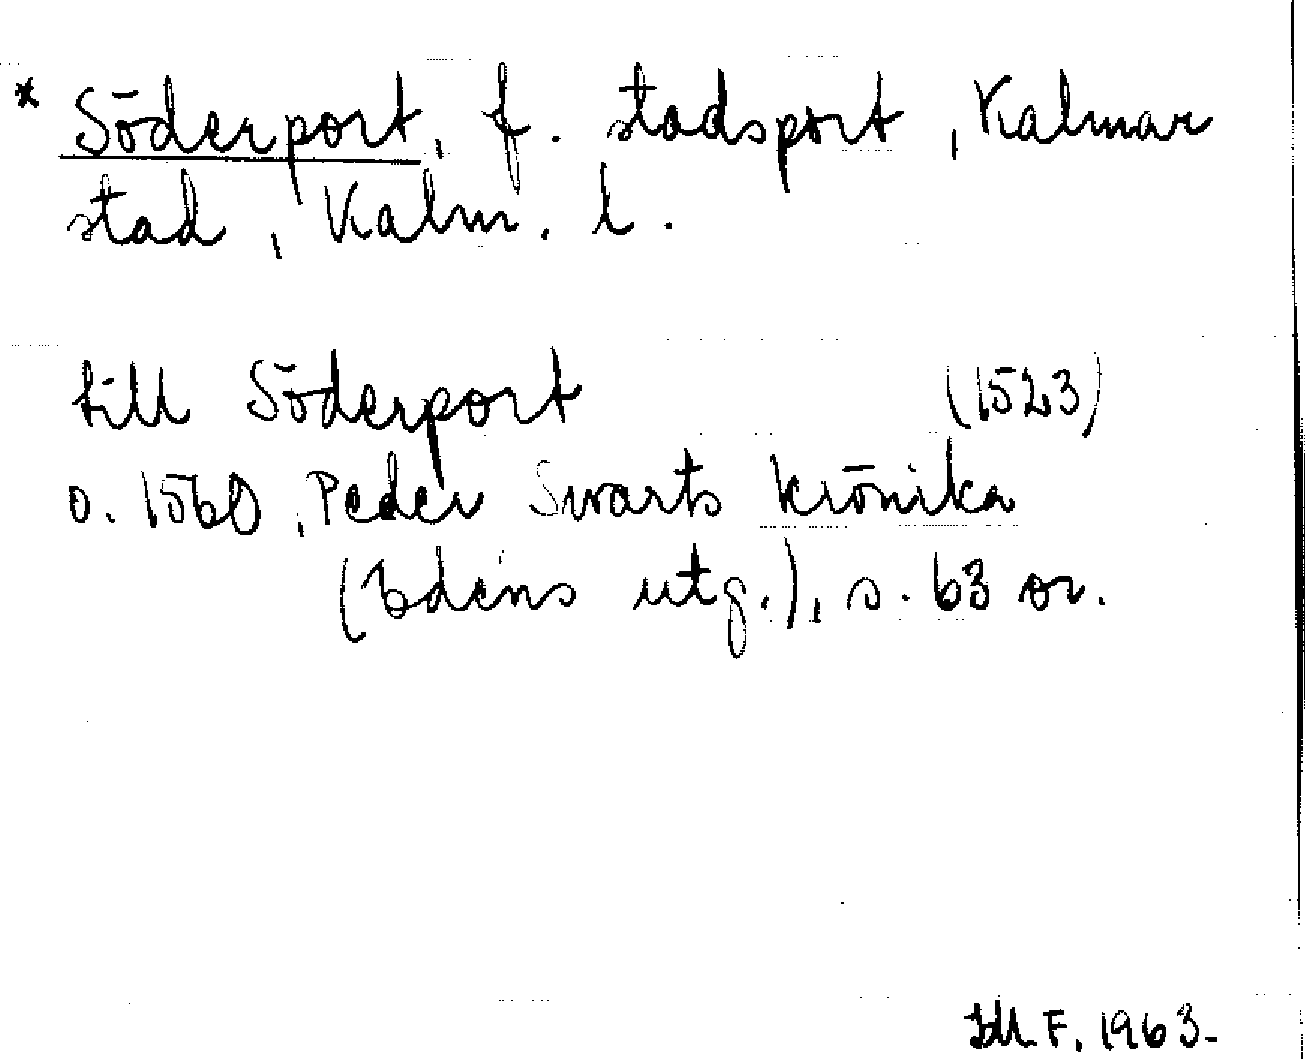 * Söderport, f. stadsport, Kalmar
stad, Kalm. l.
till Söderport (1523)
o. 1560, Peder Swarts krönika
(Edéns utg.), s. 63 or.
F. 1963.